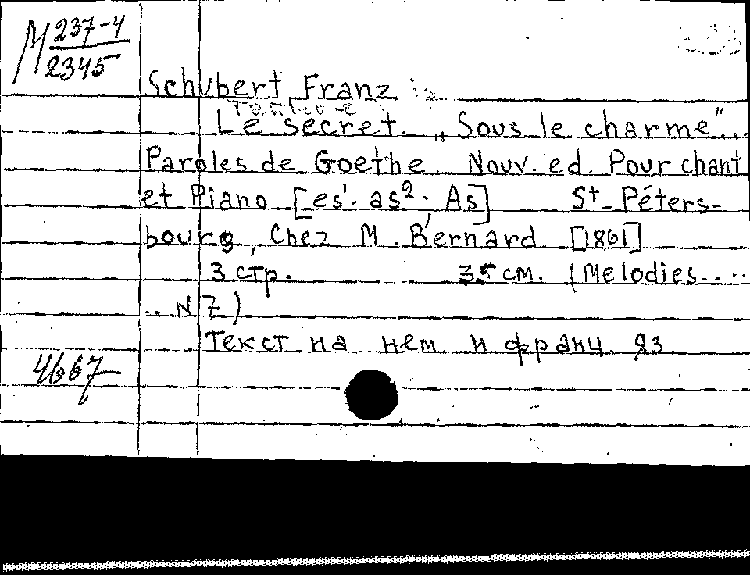 М 237-4
2345
Schubert, Franz
Le secret. „Sous le charme"...
Paroles de Goethe Nouv. ed. Pour chant
et Piano [es¹. as²; As] St-Péters-
bourg, Chez M. Bernard [1861]
3 стр. 35 см. (Melodies....
.. N 7)
Текст на нем и франц яз
4667